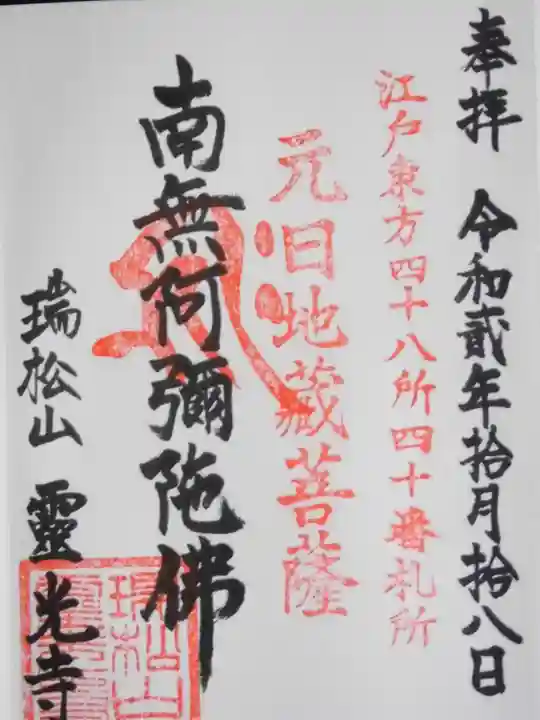 奉拝 令和貳年拾月拾八日
江戸東方四十八所四十番札所
元日地蔵菩薩
南無阿彌陀佛
瑞松山 靈光寺